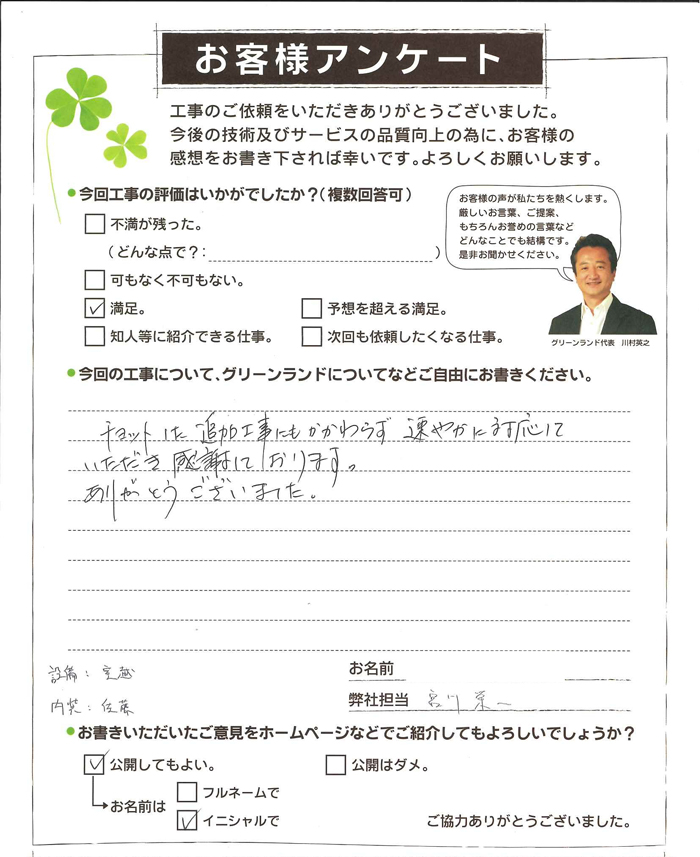 お客様アンケート
工事のご依頼をいただきありがとうございました。
今後の技術及びサービスの品質向上の為に、お客様の
感想をお書き下されば幸いです。よろしくお願いします。
今回工事の評価はいかがでしたか？（複数回答可）
不満が残った。
（どんな点で？：　）
可もなく不可もない。
満足。　予想を超える満足。
知人等に紹介できる仕事。　次回も依頼したくなる仕事。
お客様の声が私たちを熱くします。
厳しいお言葉、ご提案、
もちろんお誉めの言葉など
どんなことでも結構です。
是非お聞かせください。
グリーンランド代表　川村英之
今回の工事について、グリーンランドについてなどご自由にお書きください。
チョットした追加工事にもかかわらず速やかに対応して
いただき感謝しております。
ありがとうございました。
設備：
内装：佐藤
お名前
弊社担当　宮川栄一
お書きいただいたご意見をホームページなどでご紹介してもよろしいでしょうか？
公開してもよい。　公開はダメ。
お名前は　フルネームで
イニシャルで
ご協力ありがとうございました。